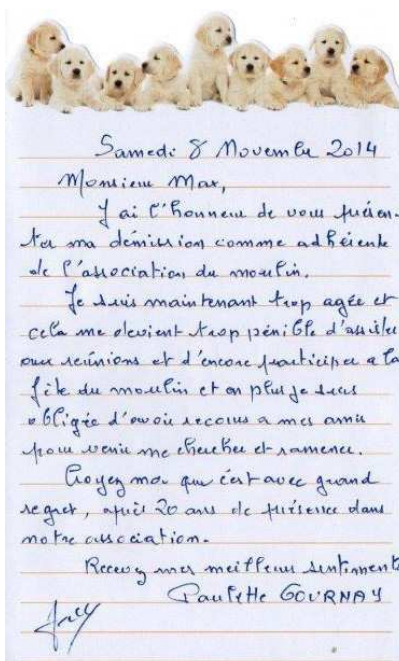 Samedi 8 Novembre 2014
Monsieur Max,
J'ai l'honneur de vous présen-
ter ma démission comme adhérente
de l'association du moulin.
Je suis maintenant trop agée et
cela me devient trop pénible d'assister
aux reúnions et d'encore participer a la
fête du moulin et en plus je suis
obligée d'avoir recours a mes amis
pour venir me chercher et ramener.
Croyez moi que c'est avec grand
regret, après 20 ans de présence dans
notre association.
Recevez mes meilleurs sentiments
Paulette GOURNAY